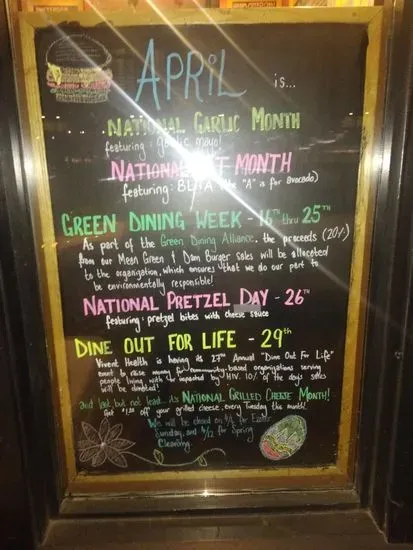 APRIL is...
NATIONAL GARLIC MONTH
featuring: garlic mayo!
NATIONAL MONTH
featuring: BLTA (the "A" is for avocado)
GREEN DINING WEEK - 16TH thru 25TH
As part of the Green Dining Alliance, the proceeds (20%)
from our Mean Green & Dam Burger sales will be allocated
to the organization, which ensures that we do our part to
be environmentally responsible!
NATIONAL PRETZEL DAY - 26TH
featuring: pretzel bites with cheese sauce
DINE OUT FOR LIFE - 29th
Vivent Health is having its 27th Annual "Dine Out For Life"
event to raise money for community-based organizations serving
people living with or impacted by HIV. 10% of the day's sales
will be donated!
and last but not least... it's NATIONAL GRILLED CHEESE MONTH!
Get $1.00 off your grilled cheese, every Tuesday this month!
We will be closed on 4/4 for Easter
Sunday, and 4/12 for Spring
Cleaning.